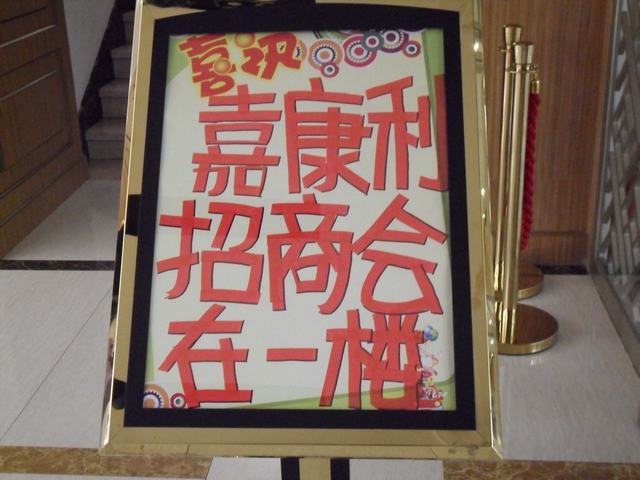 喜讯
嘉康利
招商会
在一楼